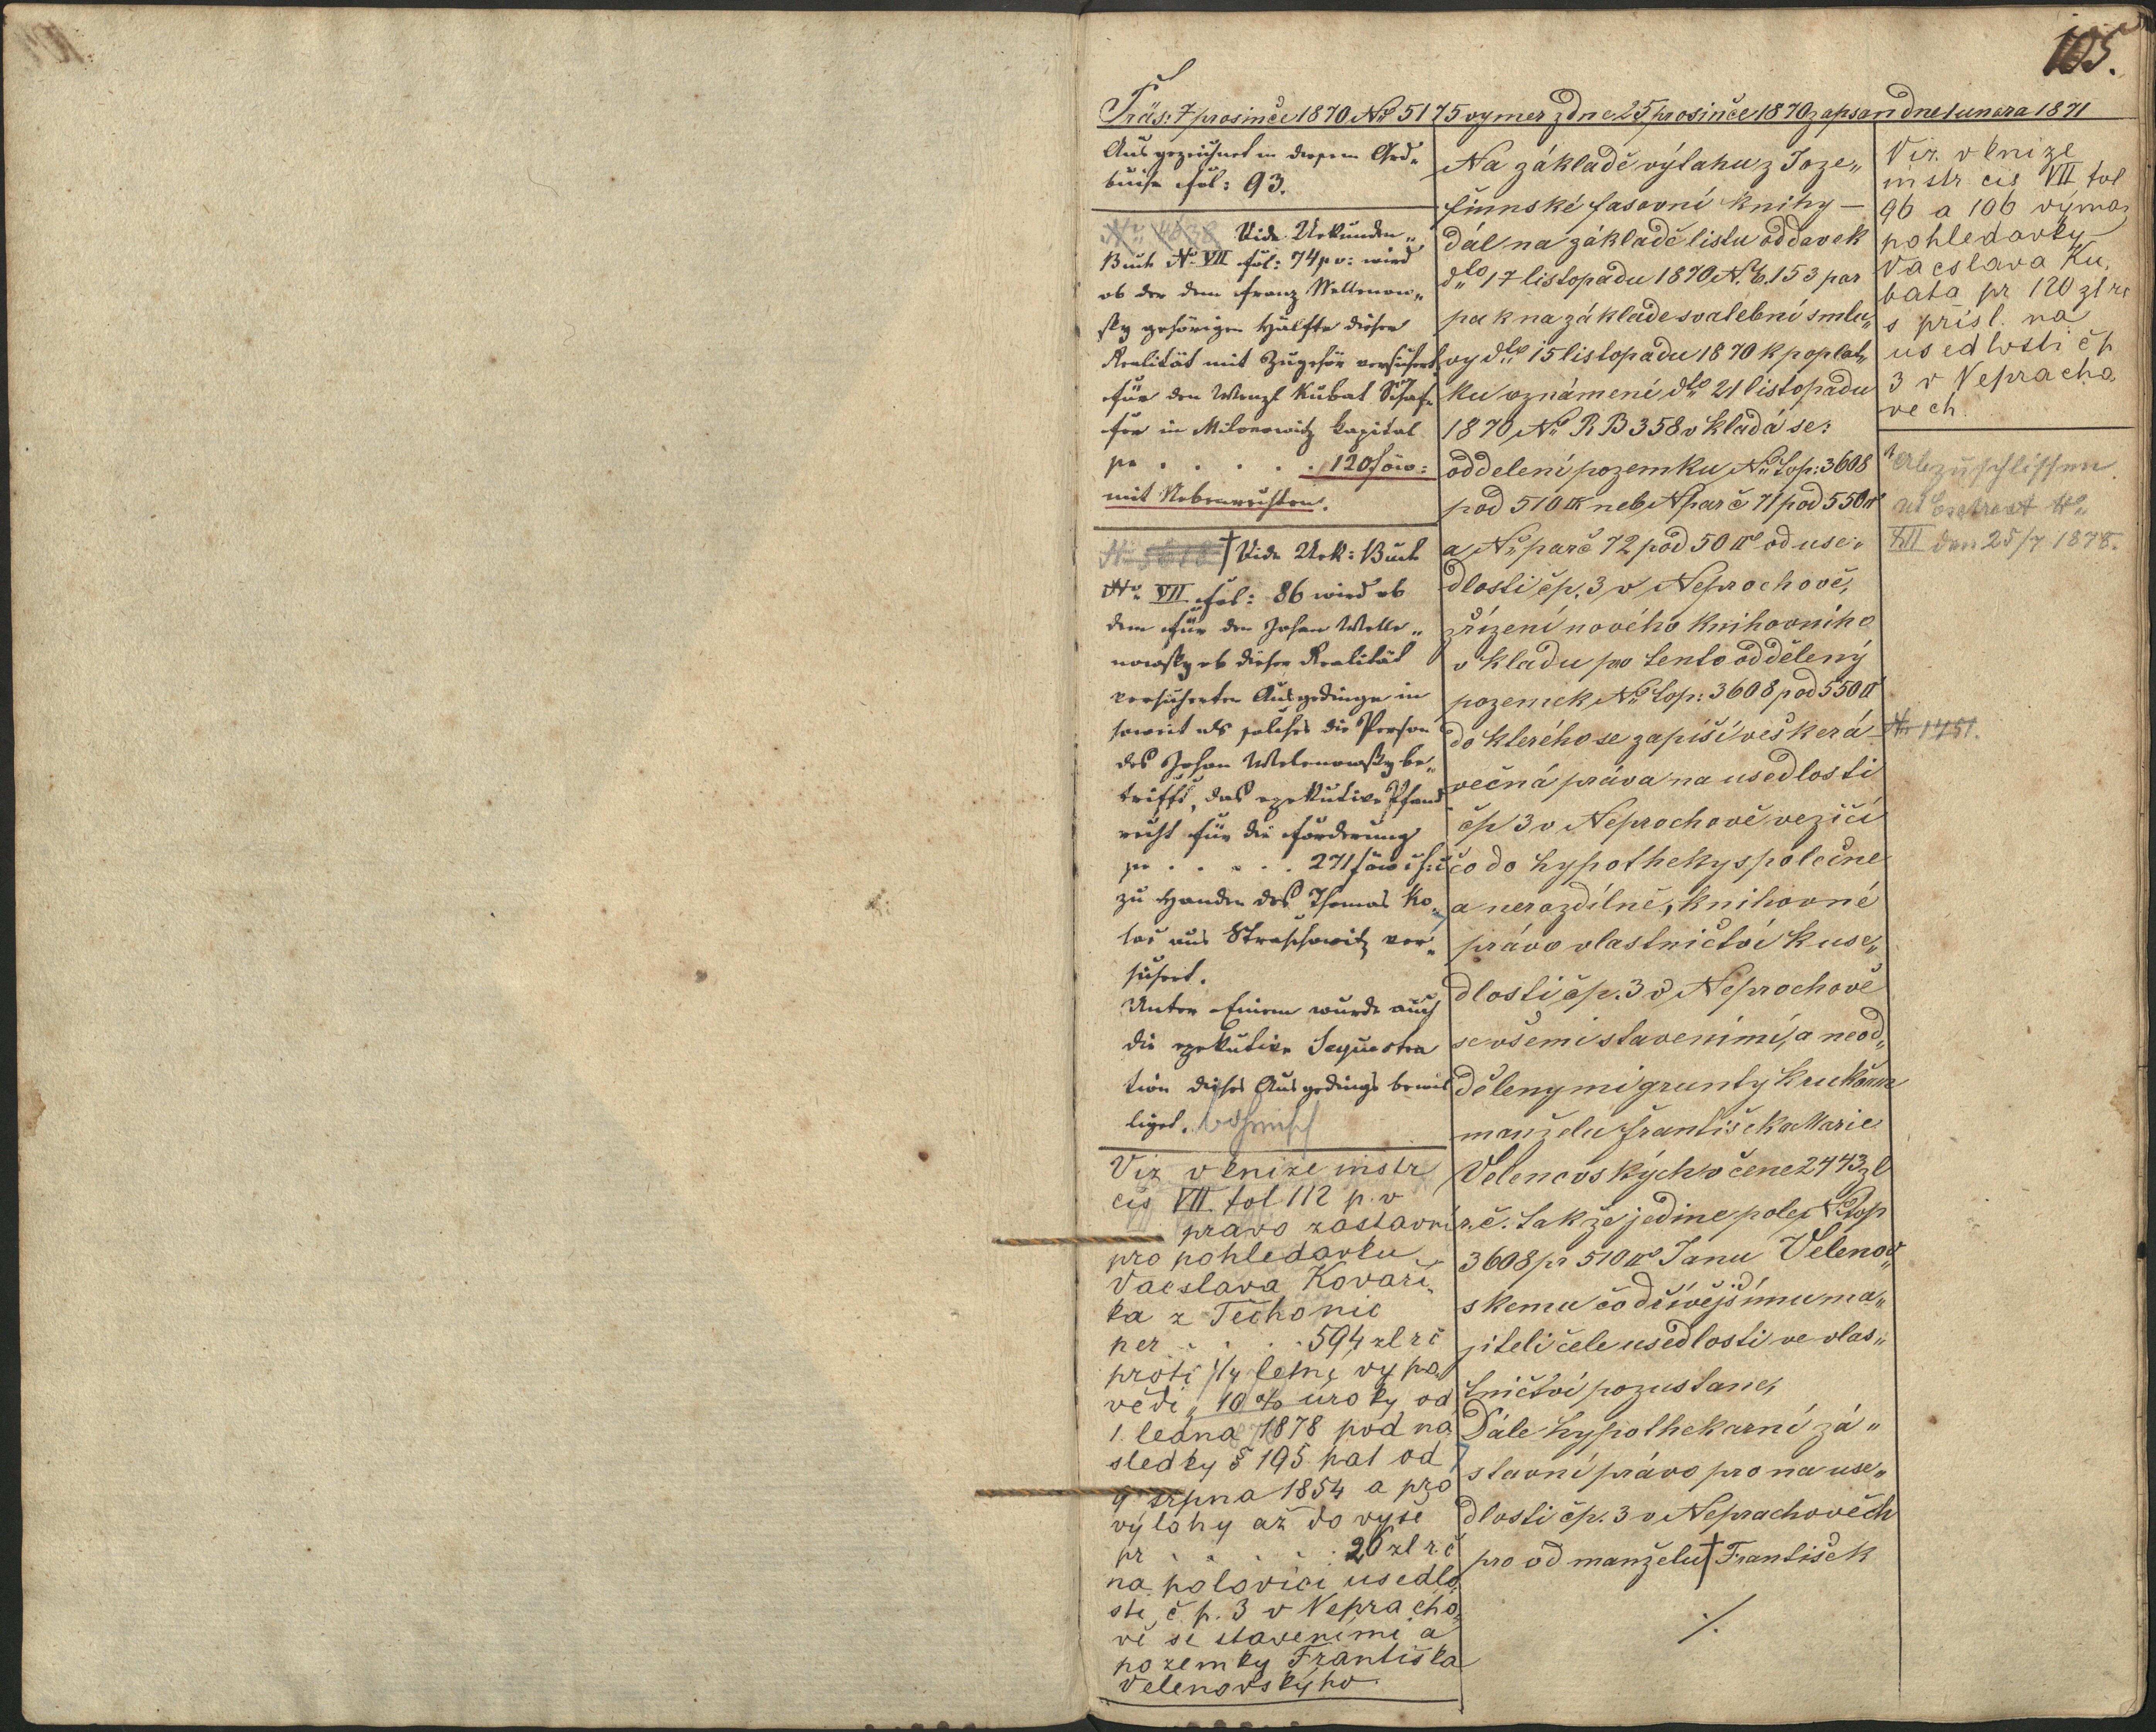 105.
Präs: 7 prosinče 1870 No 5175 vymer z dne 25 prosinče 1870 zapsan dne 1 unora 1871
Ausgezeichnet in diesem Grd„
buche fol: 93.
No 4038 Vide Urkunden„
Buch No VII fol: 74 p v: wird
ob der dem Franz Wellenow„
sky gehörigen Hälfte dieser
Realität mit Zugehör versichert
für den Wenzl Kubat Schaf„
fer in Milonowitz Kapital
pr . . . . . 120 f öw:
mit Nebenrechten.
† Vide Urk: Buch
No VII fol: 86 wird ob
dem für den Johan Welle„
nowsky ob dieser Realität
versicherten Ausgedinge in
soweit als solches die Person
des Johan Welenowsky be„
trifft, das exekutive Pfand
recht für die Forderung
pr . . . . . 271 f öw
zu Handen des Thomas Ko„
lař aus Straschowitz ver„
sichert.
Unter Einem wurde auch
die exekutive Sequestra
tion dieses Ausgedings bewil
liget. böhmisch
Viz v knize instr
cis VII. fol 112 p. v
pravo zastavni
pro pohledavku
Vacslava Kovaři„
ka z Těchonic
per . . . . 594 zl r č
proti 1/4 letne vypo„
vědi, 10 % uroky od
1. ledna 1878 pod ná
sledky § 195 pat od
9 srpna 1854 a pro
výlohy až do vyse
pr . . . . 20 zl r. č
na polovici usedlo
sti, č. p. 3 v Nepracho„
vě se staveními a
pozemky Františka
Velenovskýho
Na základě výtahu z Joze„
finnské fasovní knihy —
dál na základě listu oddavek
dto 17 listopadu 1870 N. E. 153 par
pak na základe svatební smlu„
vy dto 15 listopadu 1870 k poplat„
ku oznámení dto 21 listopadu
1870 No R B 358 vkladá se:
oddelení pozemku No top: 3608
pod 510 □° neb N parč 71 pod 550 □°
a No parč 72 pod 50 □° od use„
dlosti čp. 3 v Neprochově,
zřízení nového knihovního
vkladu pro tento oddělený
pozemek No top: 3608 pod 550 □°
do kterého se zapíší veškerá
večná práva na usedlosti
čp 3 v Neprochově vezičí
čo do hypotheky společne
a nerozdílně, knihovné
právo vlastničtví k use„
dlosti čp. 3 v Neprochově
se všemi staveními, a neod„
dělenymi grunty k ruk
manželu Františka Marie
Velenovských v čene 2443 zl
r. č. tak že jedine pole No top
3608 pr 510 □° Janu Velenov„
skemu čo dřívějšímu ma„
jiteli čele usedlosti ve vlas„
tničtví pozustane,
Dále hypothekarní zá„
stavní právo pro na use„
dlosti čp. 3 v Neprachověch
pro od manželu † František
./.
Viz. v knize
instr cis VII fol
96 a 106 výmaz
pohledavky
Vacslava Ku„
bata pr 120 zl rč
s přísl. na
usedlosti č p
3 v Nepracho
vech.
Abzuschlissen
ut Contract No
XII den 25/7 1878.
No 1451.